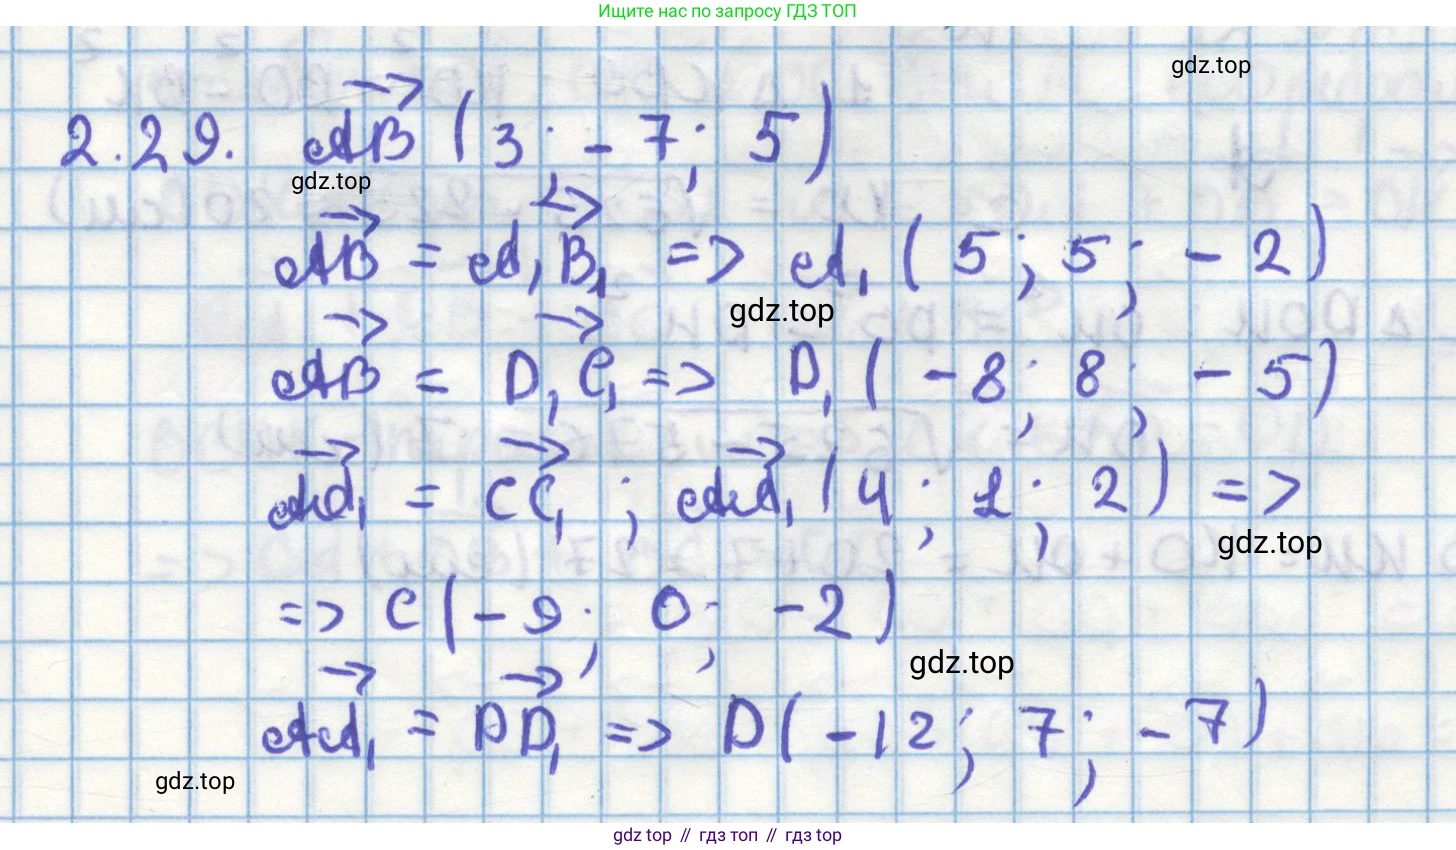 Ищите нас по запросу ГДЗ ТОП
gdz.top
2.29. AB (3; -7; 5)
gdz.top
AB = A₁B₁ => A₁ (5; 5; -2)
gdz.top
AB = D₁C₁ => D₁ (-8; 8; -5)
AA₁ = CC₁ ; AA₁ (4; 1; 2) =>
gdz.top
=> C (-9; 0; -2)
gdz.top
AA₁ = DD₁ => D (-12; 7; -7)
gdz.top
gdz top // гдз топ // гдз top